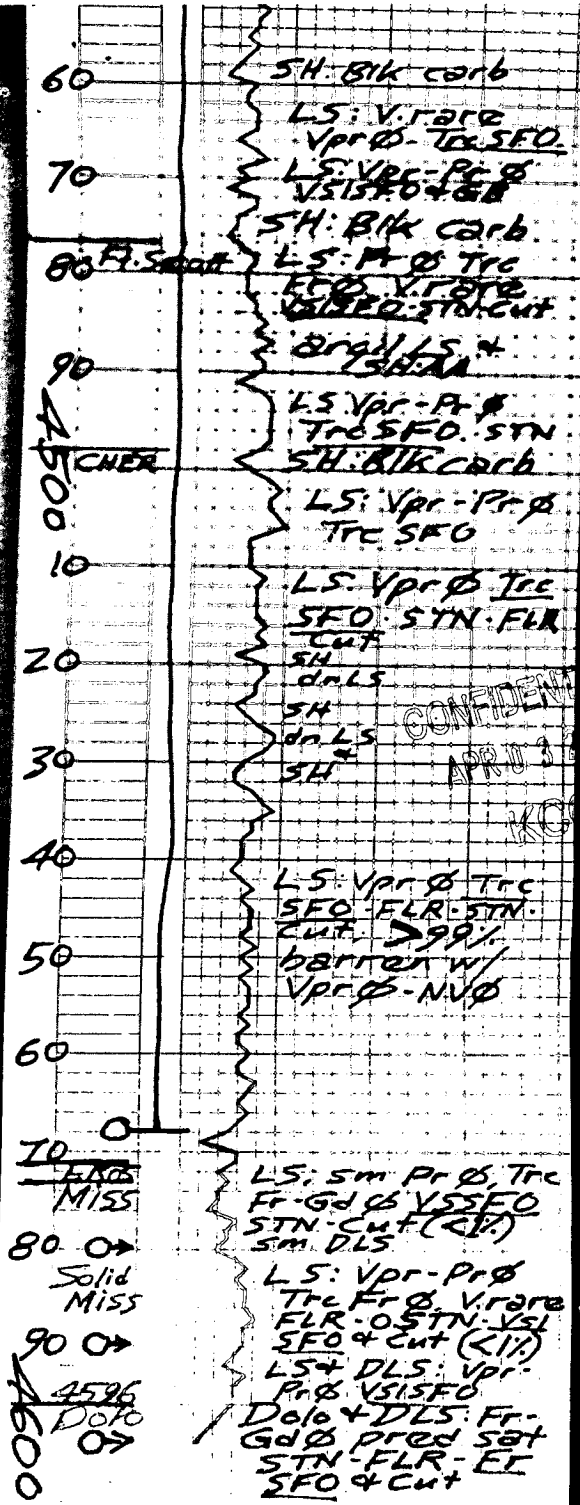 60
SH: Blk carb
LS: V. rare
Vpr Ø - Trc SFO
70
LS: Vpr-Pr Ø
VSlSFO & GB
SH: Blk carb
80
Ft. Scott
LS: Pr Ø Trc
Fr Ø V. rare
VSlSFO-STN-Cut
90
argil LS &
SH: AA
LS Vpr-Pr Ø
Trc SFO. STN
4500
CHER
SH: Blk carb
LS: Vpr-Pr Ø
Trc SFO
10
LS: Vpr Ø Trc
SFO-STN-FLR
Cut
20
SH
dnLS
SH
dnLS
&
SH
30
CONFIDENT
APR 03 2
KCC
40
LS: Vpr Ø Trc
SFO-FLR-STN-
Cut. >99%
50
barren w/
Vpr Ø-NVØ
60
70
MISS
LS: sm Pr Ø, Trc
Fr-Gd Ø VSSFO
STN-Cut (<1%)
80
sm DLS
Solid
Miss
LS: Vpr-Pr Ø
Trc Fr Ø V. rare
FLR-OSTN-VSl
90
SFO & Cut (<1%)
LS & DLS: Vpr-
Pr Ø VSlSFO
4596
Dolo
4600
Dolo & DLS: Fr-
Gd Ø pred sat
STN-FLR-Fr
SFO & Cut